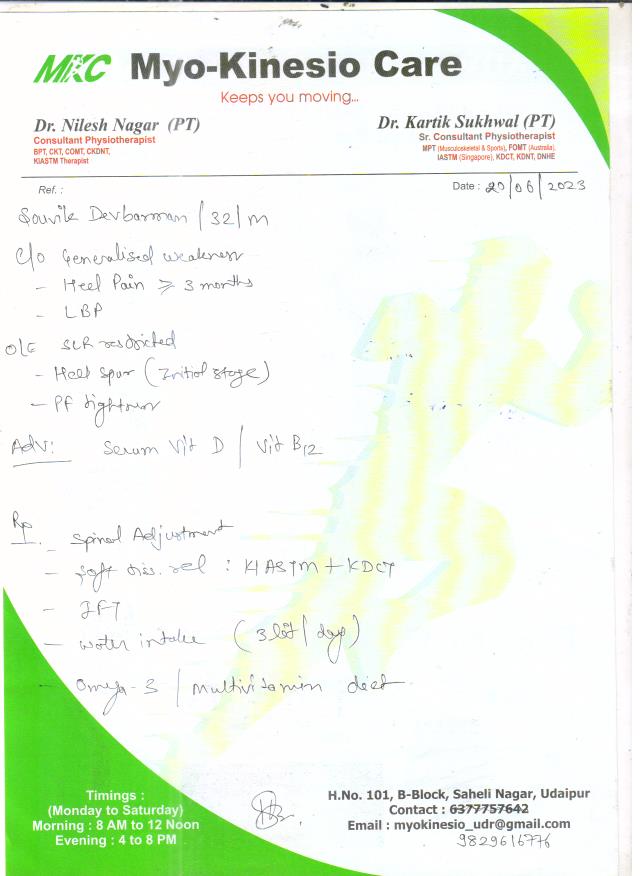 MKC Myo-Kinesio Care
Keeps you moving...
Dr. Nilesh Nagar (PT)
Consultant Physiotherapist
BPT, CKT, COMT, CKDNT,
KIASTM Therapist
Dr. Kartik Sukhwal (PT)
Sr. Consultant Physiotherapist
MPT (Musculoskeletal & Sports), FOMT (Australia),
IASTM (Singapore), KDCT, KDNT, DNHE
Ref. :
Date : 20/06/2023
Souvik Devbarman / 32 / M
C/O Generalised weakness
- Heel Pain ≥ 3 months
- LBP
O/E SLR restricted
- Heel spur (Initial stage)
- PF tightness
Adv: Serum Vit D / Vit B12
Rp
- Spinal Adjustment
- Soft tiss. rel : KIASTM + KDCT
- IFT
- Water intake (3 lit / day)
- Omega-3 / Multivitamin diet
Timings :
(Monday to Saturday)
Morning : 8 AM to 12 Noon
Evening : 4 to 8 PM
H.No. 101, B-Block, Saheli Nagar, Udaipur
Contact : 6377757642
Email : myokinesio_udr@gmail.com
9829616776